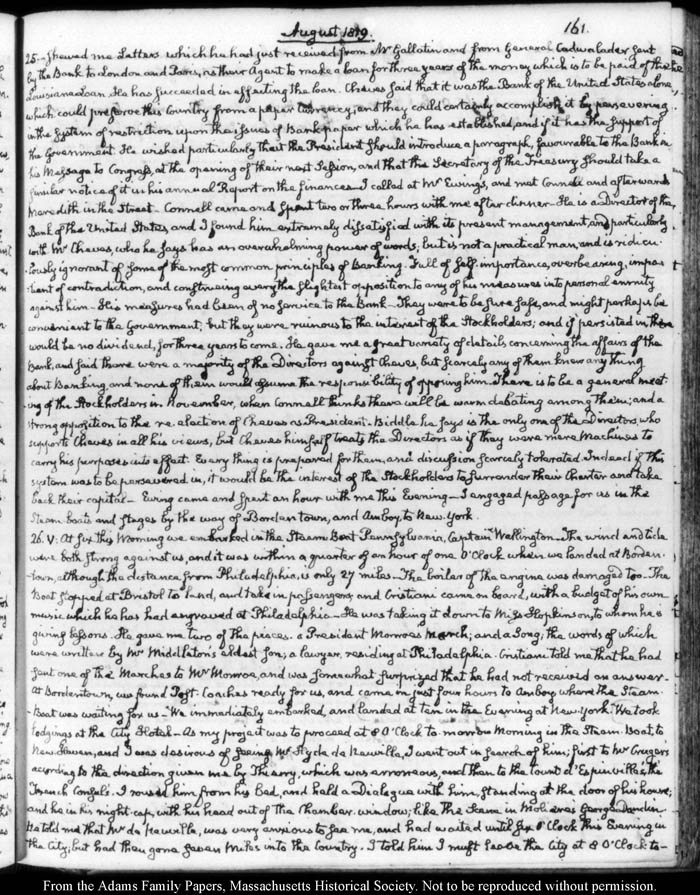 August 1819.
161.
25.— shewed me Letters which he had just received from Mr Gallatin and from General Cadwalader sent
by the Bank to London and Paris, as their Agent to make a loan for three years of the money which is to be paid of the
Louisiana loan. He has succeeded in effecting the loan. Cheves said that it was the Bank of the United States alone,
which could preserve this Country from a paper Currency; and they could certainly accomplish it by persevering
in the system of restriction upon the issues of Bank paper which he has established, and if it has the support of
the Government. He wished particularly that the President should introduce a paragraph, favourable to the Bank in
his Message to Congress, at the opening of their next Session, and that the Secretary of the Treasury should take a
similar notice of it in his annual Report on the finances— I called at Mr Ewing's, and met Connell and afterwards
Meredith in the Street— Connell came and spent two or three hours with me after dinner— He is a Director of the
Bank of the United States, and I found him extremely dissatisfied with its present management, and particularly
with Mr Cheves, who he says has an overwhelming power of words, but is not a practical man, and is ridicu-
lously ignorant of some of the most common principles of Banking. Full of self-importance, overbearing, impa-
tient of contradiction, and construing every the slightest opposition to any of his measures into personal enmity
against him— His measures had been of no service to the Bank— They were to be sure safe, and might perhaps be
convenient to the Government; but they were ruinous to the interest of the Stockholders; and if persisted in there
would be no dividend, for three years to come. He gave me a great variety of details concerning the affairs of the
Bank, and said there were a majority of the Directors against Cheves, but scarcely any of them knew any thing
about Banking, and none of them would assume the responsibility of opposing him. There is to be a general meet-
ing of the Stockholders in November, when Connell thinks there will be warm debating among them; and a
strong opposition to the re-election of Cheves as President. Biddle he says is the only one of the Directors, who
supports Cheves in all his views, but Cheves himself treats the Directors as if they were mere Machines to
carry his purposes into effect. Every thing is prepared for them, and discussion scarcely tolerated. Indeed if this
system was to be persevered in, it would be the interest of the Stockholders to surrender their Charter and take
back their capital— Ewing came and spent an hour with me this Evening— I engaged passage for us in the
Steam boats and Stages by the way of Bordentown, and Amboy, to New-York.
26. V: At six this Morning we embarked in the Steam Boat Pennsylvania, Captain Wellington— The wind and tide
were both strong against us, and it was within a quarter of an hour of one O'Clock when we landed at Borden-
town, although the distance from Philadelphia, is only 27 miles— The boiler of the engine was damaged too— The
Boat stopped at Bristol to land, and take in passengers, and Cristiani came on board, with a budget of his own
music which he has had engraved at Philadelphia— He was taking it down to Miss Hopkinson, to whom he is
giving lessons. He gave me two of the pieces. a President Monroe's March; and a Song; the words of which
were written by Mr Middleton's eldest Son; a lawyer, residing at Philadelphia. Cristiani told me that he had
sent one of the Marches to Mr Monroe, and was somewhat surprized that he had not received an answer—
At Bordentown, we found Post-Coaches ready for us, and came in just four hours to Amboy where the Steam-
Boat was waiting for us— We immediately embarked, and landed at ten in the Evening at New-York. We took
lodgings at the City Hotel— As my project was to proceed at 8 O'Clock to-morrow Morning in the Steam-Boat, to
New-Haven, and I was desirous of seeing Mr Hyde de Neuville, I went out in search of him; first to Mr Cruger's
according to the direction given me by Thierry, which was erroneous, and then to the Count d'Espinville's, the
French Consul. I roused him from his Bed, and held a Dialogue with him, standing at the door of his house;
and he in his night-cap, with his head out of the Chamber window; like the Scene in Moliere's George Dandin.
He told me that Mr de Neuville, was very anxious to see me, and had waited until six O'Clock this Evening in
the City; but had then gone seven Miles into the Country. I told him I must leave the City at 8 O'Clock to-
From the Adams Family Papers, Massachusetts Historical Society. Not to be reproduced without permission.